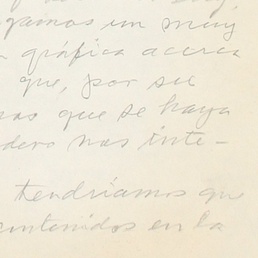 gamos un muy
gráfica acerca
que, por su
que se haya
nos inte-
tendríamos que
contenidos en la